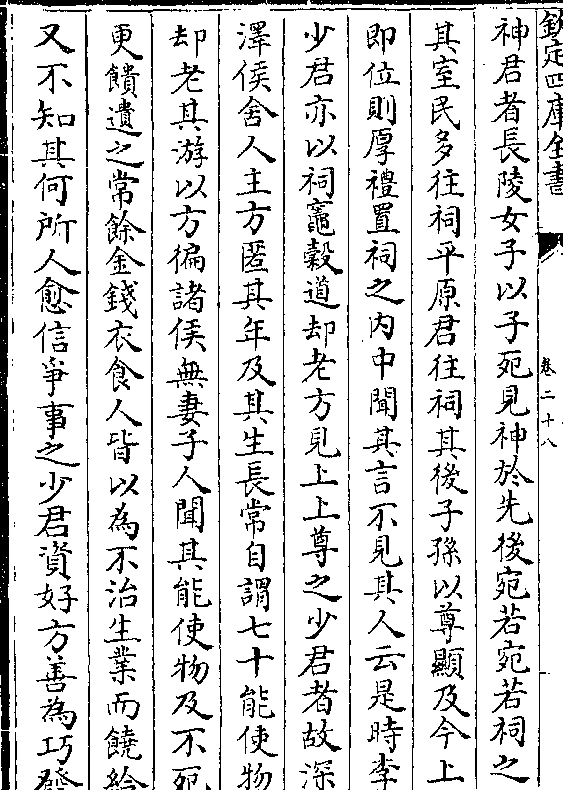 欽定四庫全書
卷二十八
神君者長陵女子以子死見神於先後宛若宛若祠之
其室民多往祠平原君往祠其後子孫以尊顯及今上
即位則厚禮置祠之内中聞其言不見其人云是時李
少君亦以祠竈穀道却老方見上上尊之少君者故深
澤侯舍人主方匿其年及其生長常自謂七十能使物
却老其游以方徧諸侯無妻子人聞其能使物及不死
更饋遺之常餘金錢衣食人皆以為不治生業而饒給
又不知其何所人愈信爭事之少君資好方善為巧發